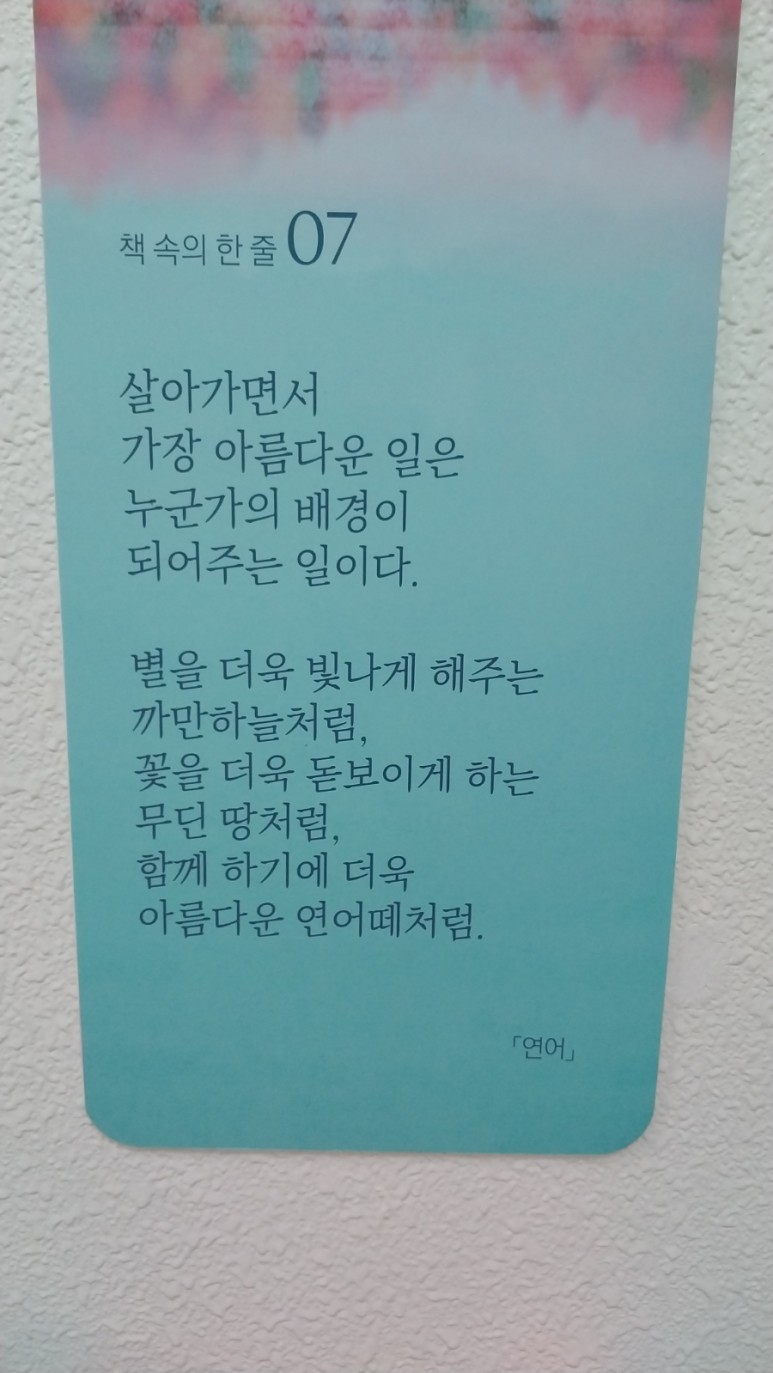 책 속의 한 줄 07
살아가면서
가장 아름다운 일은
누군가의 배경이
되어주는 일이다.
별을 더욱 빛나게 해주는
까만하늘처럼,
꽃을 더욱 돋보이게 하는
무딘 땅처럼,
함께 하기에 더욱
아름다운 연어떼처럼.
「연어」